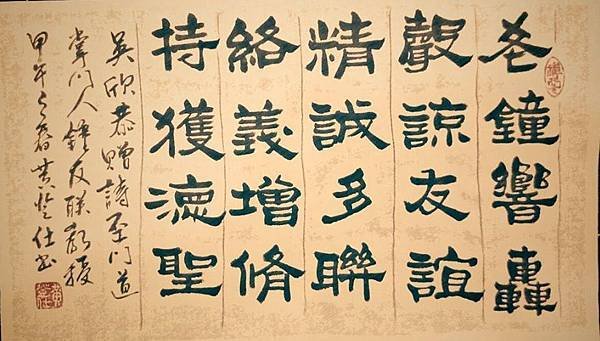 鐘響轟
諒友誼
精誠多聯
絡義增脩
持獲德聖
吳欣恭贈詩至門道
掌門人鐘友聯教授
甲午之春黃登仕書